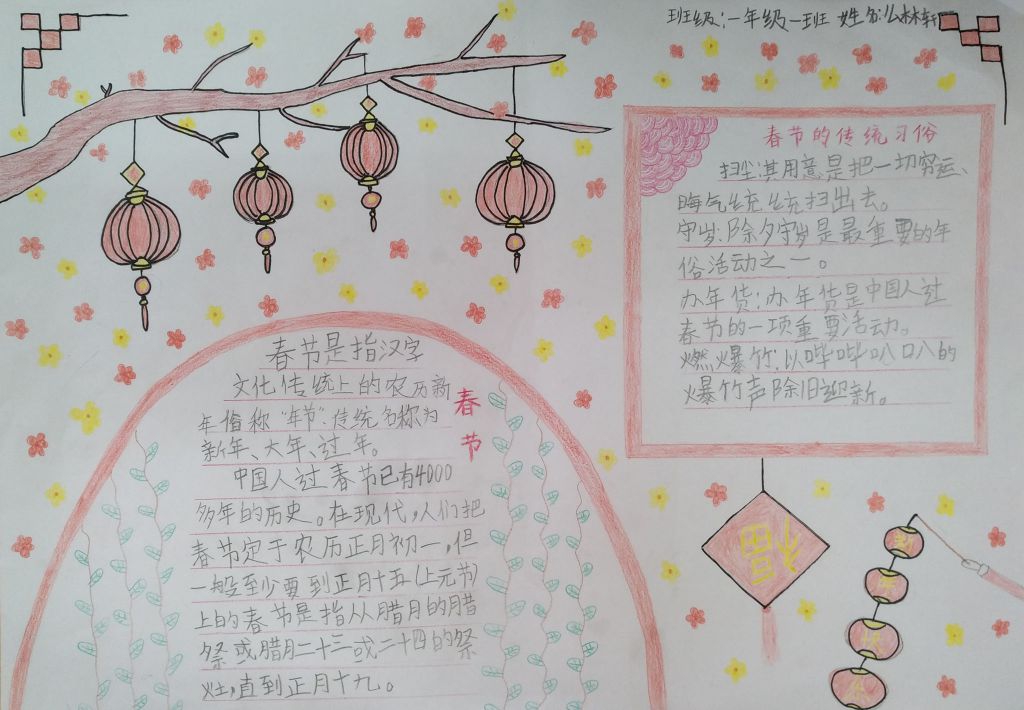 班级:一年级一班 姓名:么林轩
春节的传统习俗
扫尘:其用意是把一切穷运、
晦气统统扫出去。
守岁:除夕守岁是最重要的年
俗活动之一。
办年货:办年货是中国人过
春节的一项重要活动。
燃爆竹:以哔哔叭叭的
爆竹声除旧迎新。
春节是指汉字
文化传统上的农历新
年俗称“年节”,传统名称为
新年、大年、过年。
中国人过春节已有4000
多年的历史。在现代,人们把
春节定于农历正月初一,但
一般至少要到正月十五(上元节)
上的春节是指从腊月的腊
祭或腊月二十三或二十四的祭
灶,直到正月十九。
春
节
福
新
年
快
乐